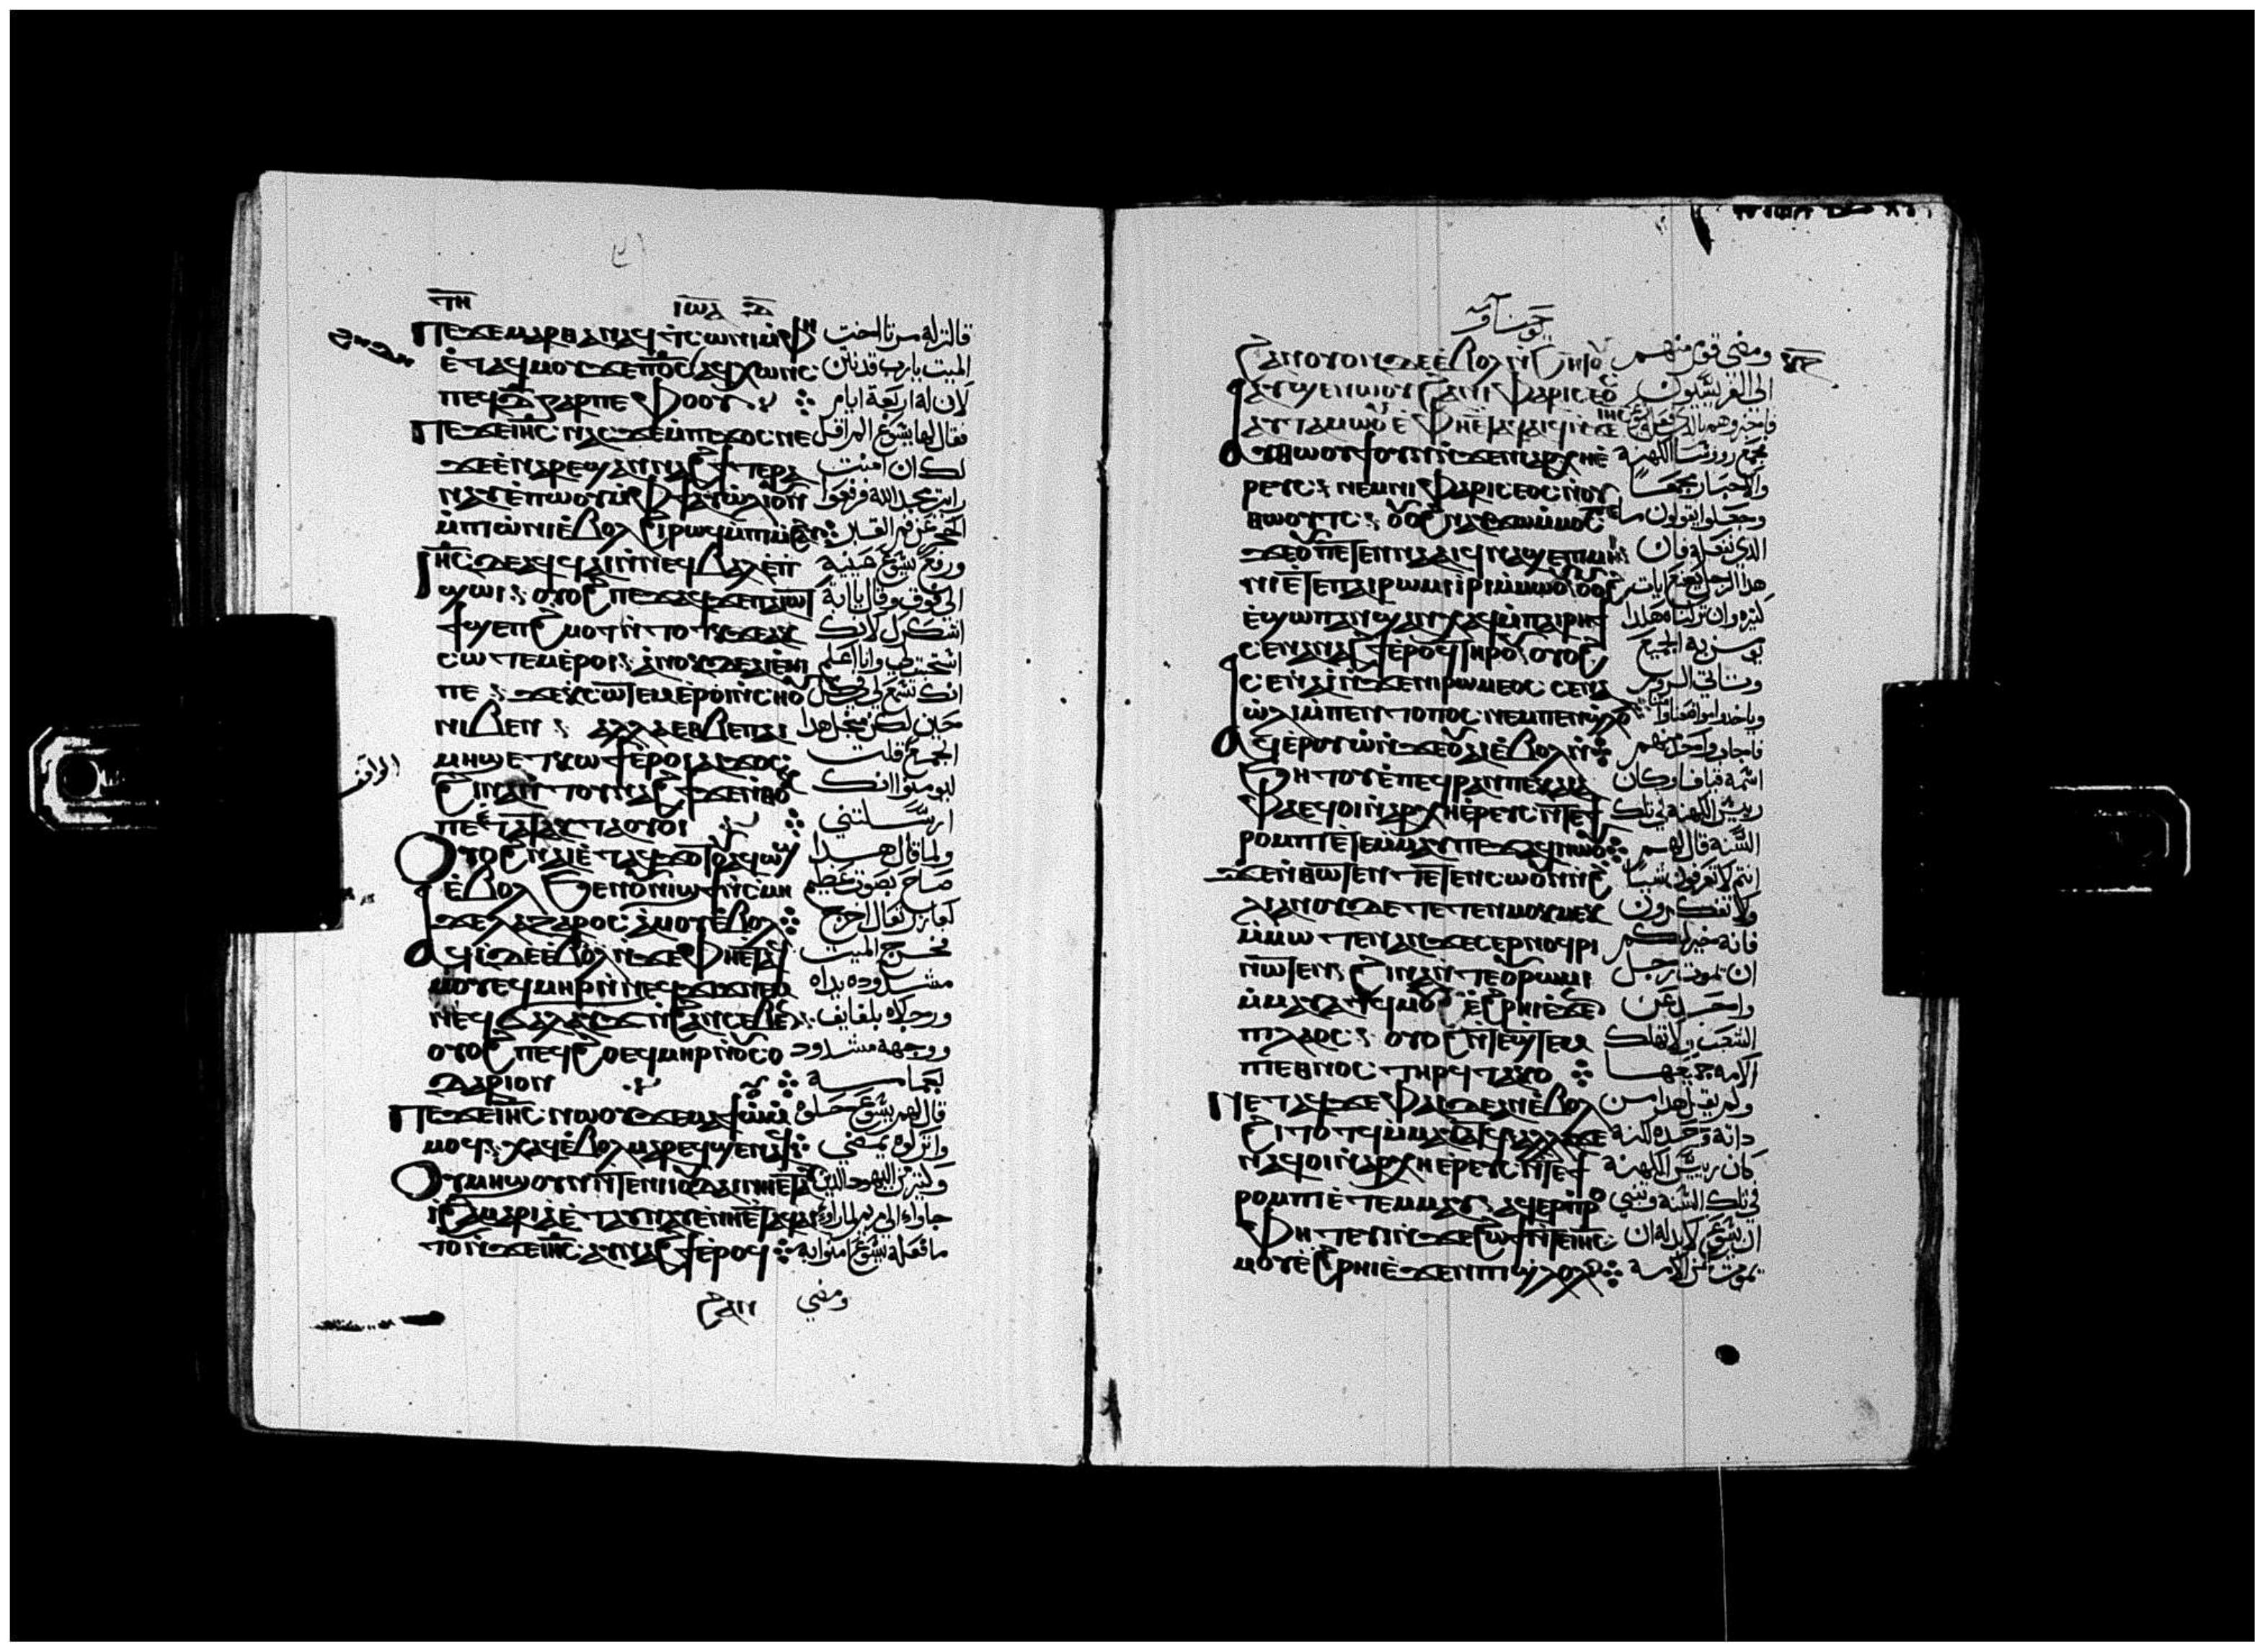 ⲓⲱⲁ
ⲡⲉϫⲉ ⲙⲁⲣⲑⲁ ⲛⲁϥ ⲧⲥⲱⲛⲓ ⲙⲫⲏ قالت له مرتا اخت
ⲉⲧⲁϥⲙⲟⲩ ϫⲉ ⲡⲟⲥ ⲁϥⲭⲱⲛⲥ الميت يارب قد نتن
ⲡⲉϥⲇ ⲅⲁⲣ ⲡⲉ ⲫⲟⲟⲩ لان له اربعة ايام
ⲡⲉϫⲉ ⲓⲏⲥ ⲛⲁⲥ ϫⲉ ⲙⲡⲉϫⲟⲥ ⲛⲉ فقال لها يشوع الم اقل
ϫⲉ ⲉⲛⲁⲣⲉϣⲁⲛⲛⲁϩϯ ⲧⲉⲣⲁ لك ان امنت
ⲛⲁⲩ ⲉⲡⲱⲟⲩ ⲙⲫϯ ⲁⲩⲱⲗⲓ ⲟⲩⲛ رايتي مجد الله فرفعوا
ⲙⲡⲓⲱⲛⲓ ⲉⲃⲟⲗ ϩⲓⲣⲱϥ ⲙⲡⲓⲙϩⲁⲩ الحجر عن فم القبر
ⲓⲏⲥ ⲇⲉ ⲁϥϥⲁⲓ ⲛⲛⲉϥⲃⲁⲗ ⲉⲡ ورفع يشوع عينيه
ϣⲱⲓ ⲟⲩⲟϩ ⲡⲉϫⲁϥ ϫⲉ ⲡⲁⲓⲱⲧ الي فوق وقال يا ابة
ϯϣⲉⲡϩⲙⲟⲧ ⲛⲧⲟⲧⲕ ϫⲉ ⲁⲕ اشكرك لانك
ⲥⲱⲧⲉⲙ ⲉⲣⲟⲓ ⲁⲛⲟⲕ ⲇⲉ ⲁⲓⲉⲙⲓ استجبت لي وانا اعلم
ⲡⲉ ϫⲉ ⲕⲥⲱⲧⲉⲙ ⲉⲣⲟⲓ ⲛⲥⲏⲟⲩ انك تسمع لي في كل
ⲛⲓⲃⲉⲛ ⲁⲗⲗⲁ ⲉⲑⲃⲉ ⲡⲁⲓ حين لكن من اجل هدا
ⲙⲏϣ ⲉⲧⲕⲱϯ ⲉⲣⲟⲓ ⲁⲓϫⲟⲥ الجمع قلت
ϩⲓⲛⲁ ⲛⲧⲟⲩⲛⲁϩϯ ϫⲉ ⲛⲑⲟⲕ ليومنوا انك
ⲡⲉⲧⲁⲕⲧⲁⲟⲩⲟⲓ ارسلتني
ⲟⲩⲟϩ ⲛⲁⲓ ⲉⲧⲁϥϫⲟⲧⲟⲩ ⲁϥⲱϣ ولما قال هدا
ⲉⲃⲟⲗ ϧⲉⲛ ⲟⲩⲛⲓϣϯ ⲛⲥⲙⲏ صاح بصوت عظيم
ϫⲉ ⲗⲁⲍⲁⲣⲟⲥ ⲁⲙⲟⲩ ⲉⲃⲟⲗ لعازر تعال اخرج
ⲁϥⲓ ⲇⲉ ⲉⲃⲟⲗ ⲛϫⲉ ⲫⲏⲉⲧⲁϥ فخرج الميت
ⲙⲟⲩ ⲉϥⲙⲏⲣ ⲛⲛⲉϥϫⲓϫ ⲛⲉⲙ مشدوده يداه
ⲛⲉϥϭⲁⲗⲁⲩϫ ⲛϩⲁⲛⲥⲉⲃⲉⲛ ورجلاه بلفايف
ⲟⲩⲟϩ ⲡⲉϥϩⲟ ⲉϥⲙⲏⲣ ⲛⲟⲩⲥⲟ ووجهه مشدود
ⲇⲁⲣⲓⲟⲛ بعمامة
ⲡⲉϫⲉ ⲓⲏⲥ ⲛⲱⲟⲩ ϫⲉ ⲃⲟⲗϥ قال لهم يشوع حلوه
ⲭⲁϥ ⲉⲃⲟⲗ ⲙⲁⲣⲉϥϣⲉⲛⲁϥ واتركوه يمضي
ⲟⲩⲙⲏϣ ⲟⲩⲛ ⲛⲧⲉ ⲛⲓⲓⲟⲩⲇⲁⲓ ⲛⲏⲉⲧⲁⲩ وكثير من اليهود الدين
ⲓ ϩⲁ ⲙⲁⲣⲓⲁ ⲉⲧⲁⲩⲛⲁⲩ ⲉⲛⲏⲉⲧⲁϥⲁⲓ جاوا الي مريم لما راوا
ⲧⲟⲩ ⲛϫⲉ ⲓⲏⲥ ⲁⲩⲛⲁϩϯ ⲉⲣⲟϥ ما فعله يشوع امنوا به
ϩⲁⲛ ومضي
ϩⲁⲛⲟⲩⲟⲛ ⲇⲉ ⲉⲃⲟⲗ ⲛϧⲏⲧⲟⲩ ومضي قوم منهم
ⲁⲩϣⲉⲛⲱⲟⲩ ϩⲁ ⲛⲓⲫⲁⲣⲓⲥⲉⲟⲥ الي الفريسيون
ⲁⲩⲧⲁⲙⲱⲟⲩ ⲉⲫⲏⲉⲧⲁϥⲁⲓϥ ⲛϫⲉ ⲓⲏⲥ فاخبروهم بالدي فعل يشوع
ⲁⲩⲑⲱⲟⲩϯ ⲟⲩⲛ ⲛϫⲉ ⲛⲓⲁⲣⲭⲏⲉ فجمع رووسا الكهنة
ⲣⲉⲩⲥ ⲛⲉⲙ ⲛⲓⲫⲁⲣⲓⲥⲉⲟⲥ ⲛⲟⲩ والاحبار مجمعا
ⲑⲱⲟⲩⲧⲥ ⲟⲩⲟϩ ⲛⲁⲩϫⲱ ⲙⲙⲟⲥ وجعلوا يقولون ما
ϫⲉ ⲟⲩ ⲡⲉⲧⲉⲛⲛⲁⲁⲓϥ ⲛⲁϣⲉⲛ ⲙⲏⲓ الدي نفعله فان
ⲛⲓ ⲉⲧⲉ ⲡⲁⲓⲣⲱⲙⲓ ⲓⲣⲓ ⲙⲙⲱⲟⲩ ⲟⲩⲟϩ هدا الرجل يصنع ايات
ⲉϣⲱⲡ ⲁⲛϣⲁⲛⲭⲁϥ ⲙⲡⲁⲓⲣⲏϯ كثيره وان تركناه هكدا
ⲥⲉⲛⲁⲛⲁϩϯ ⲉⲣⲟϥ ⲧⲏⲣⲟⲩ ⲟⲩⲟϩ يومن به الجميع
ⲥⲉⲛⲁⲓ ⲛϫⲉ ⲛⲓⲣⲱⲙⲉⲟⲥ ⲥⲉⲛⲁ وتاتي الروم
ⲱⲗⲓ ⲙⲡⲉⲛⲧⲟⲡⲟⲥ ⲛⲉⲙ ⲡⲉⲛϣⲗⲟⲗ
ⲁϥⲉⲣⲟⲩⲱ ⲛϫⲉ ⲟⲩⲁⲓ ⲉⲃⲟⲗ ⲛ فاجاب واحد منهم
ϧⲏⲧⲟⲩ ⲉⲡⲉϥⲣⲁⲛ ⲡⲉ ⲕⲁⲓⲁ اسمه قيافا وكان
ⲫⲁ ⲉϥⲟⲓ ⲛⲁⲣⲭⲏⲉⲣⲉⲩⲥ ⲛⲧⲉ ϯ رييس الكهنه في تلك
ⲣⲟⲙⲡⲓ ⲉⲧⲉⲙⲙⲁⲩ ⲡⲉϫⲁϥ ⲛⲱⲟⲩ السنه قال لهم
ϫⲉ ⲛⲑⲱⲧⲉⲛ ⲧⲉⲧⲉⲛⲥⲱⲟⲩⲛ ⲛϩ انتم لا تعرفون شيا
ⲗⲓ ⲁⲛ ⲟⲩⲇⲉ ⲧⲉⲧⲉⲛⲙⲟⲕⲙⲉⲕ ولا تفكرون
ⲙⲙⲱⲧⲉⲛ ⲁⲛ ϫⲉ ⲥⲉⲣⲛⲟϥⲣⲓ فانه خير لكم
ⲛⲱⲧⲉⲛ ϩⲓⲛⲁ ⲛⲧⲉ ⲟⲩⲣⲱⲙⲓ ان يموت رجل
ⲙⲙⲁⲩⲁⲧϥ ⲙⲟⲩ ⲉϩⲣⲏⲓ ⲉϫⲉⲛ واحد عن
ⲡⲓⲗⲁⲟⲥ ⲟⲩⲟϩ ⲛⲧⲉϣⲧⲉⲙ الشعب ولا تهلك
ⲡⲓⲉⲑⲛⲟⲥ ⲧⲏⲣϥ ⲧⲁⲕⲟ الامه جميعها
ⲛⲉⲧⲁϥϫⲉ ⲫⲁⲓ ⲇⲉ ⲁⲛ ⲉⲃⲟⲗ ولم يقل هدا من
ϩⲓⲧⲟⲧϥ ⲙⲙⲁⲩⲁⲧϥ ⲁⲗⲗⲁ ϫⲉ داته وحده لكنه
ⲛⲁϥⲟⲓ ⲛⲁⲣⲭⲏⲉⲣⲉⲩⲥ ⲛⲧⲉ ϯ كان رييس الكهنة
ⲣⲟⲙⲡⲓ ⲉⲧⲉⲙⲙⲁⲩ ⲁϥⲉⲣⲡⲣⲟ في تلك السنة فتنبي
ⲫⲏⲧⲉⲩⲓⲛ ϫⲉ ϩⲱϯ ⲛⲧⲉ ⲓⲏⲥ ان يشوع لابد له ان
ⲙⲟⲩ ⲉϩⲣⲏⲓ ⲉϫⲉⲛ ⲡⲓϣⲗⲟⲗ يموت عن الامة